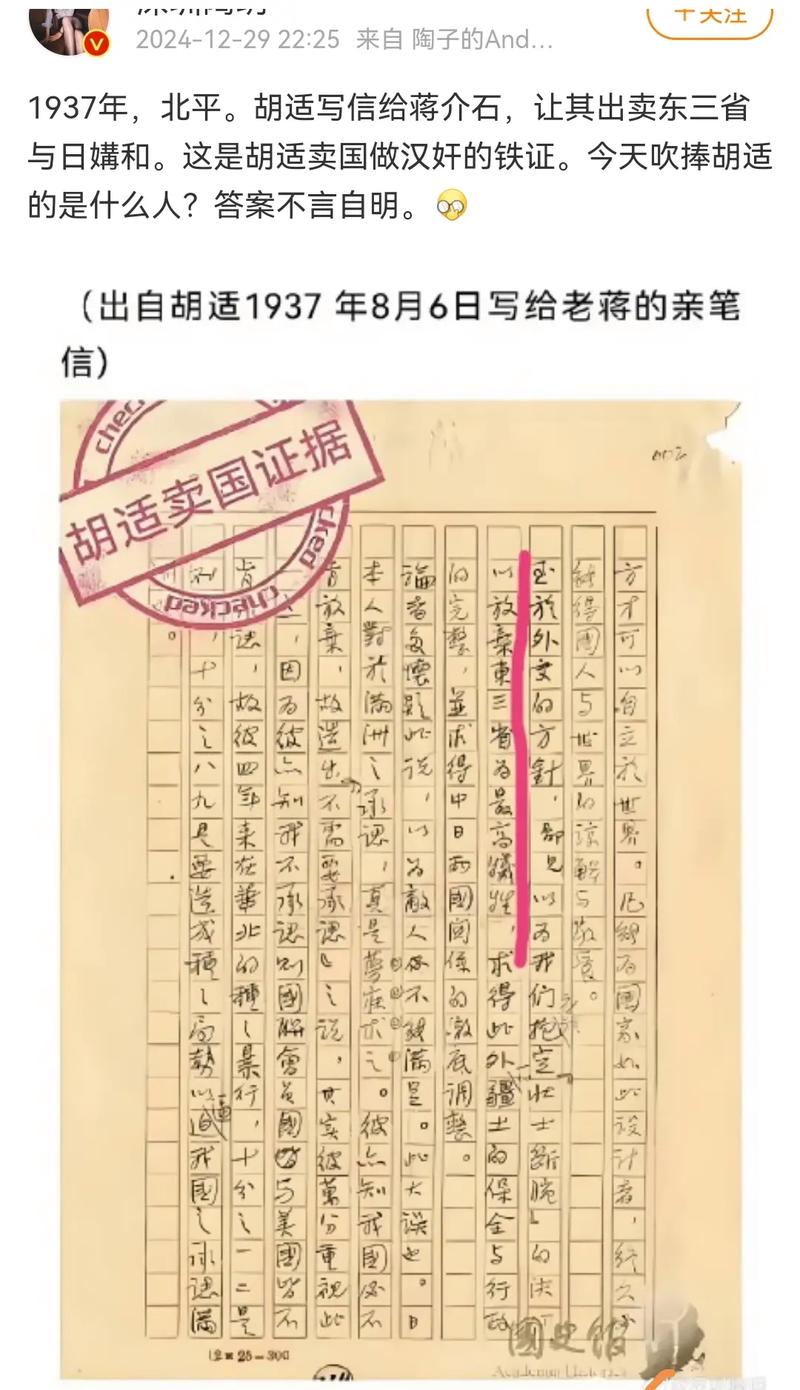 2024-12-29 22:25 来自 陶子的And...
十关注
1937年，北平。胡适写信给蒋介石，让其出卖东三省
与日媾和。这是胡适卖国做汉奸的铁证。今天吹捧胡适
的是什么人？答案不言自明。
（出自胡适1937 年8月6日写给老蒋的亲笔
信）
checked
胡适卖国证据
checked
方才可以自立於世界。凡為國家如此設計者，終久必
能得國人与世界的諒解与敬
至於外交的方針，鄙見以为我們抱定壮士斷腕」的决
以放棄東三省为最高犧牲，求得此外疆土的保全与行政
的完整，並求得中日两國関係的澈底調整。
論者多懷疑此說，以为敵人必不能滿足。此大誤也。日
本人對於滿洲之承認，真是夢寐求之。彼亦知我國必不
肯放棄，故造出不需要承認」之說，其实彼萬分重視此
，因为彼亦知我不承認則國聯會員國皆与美國皆不
肯認，故彼四年來在華北的種々暴行，十分之一二是
別，十分之八九是要造成種々局勢以逼我國之承認滿
。
12×25=300
國史館